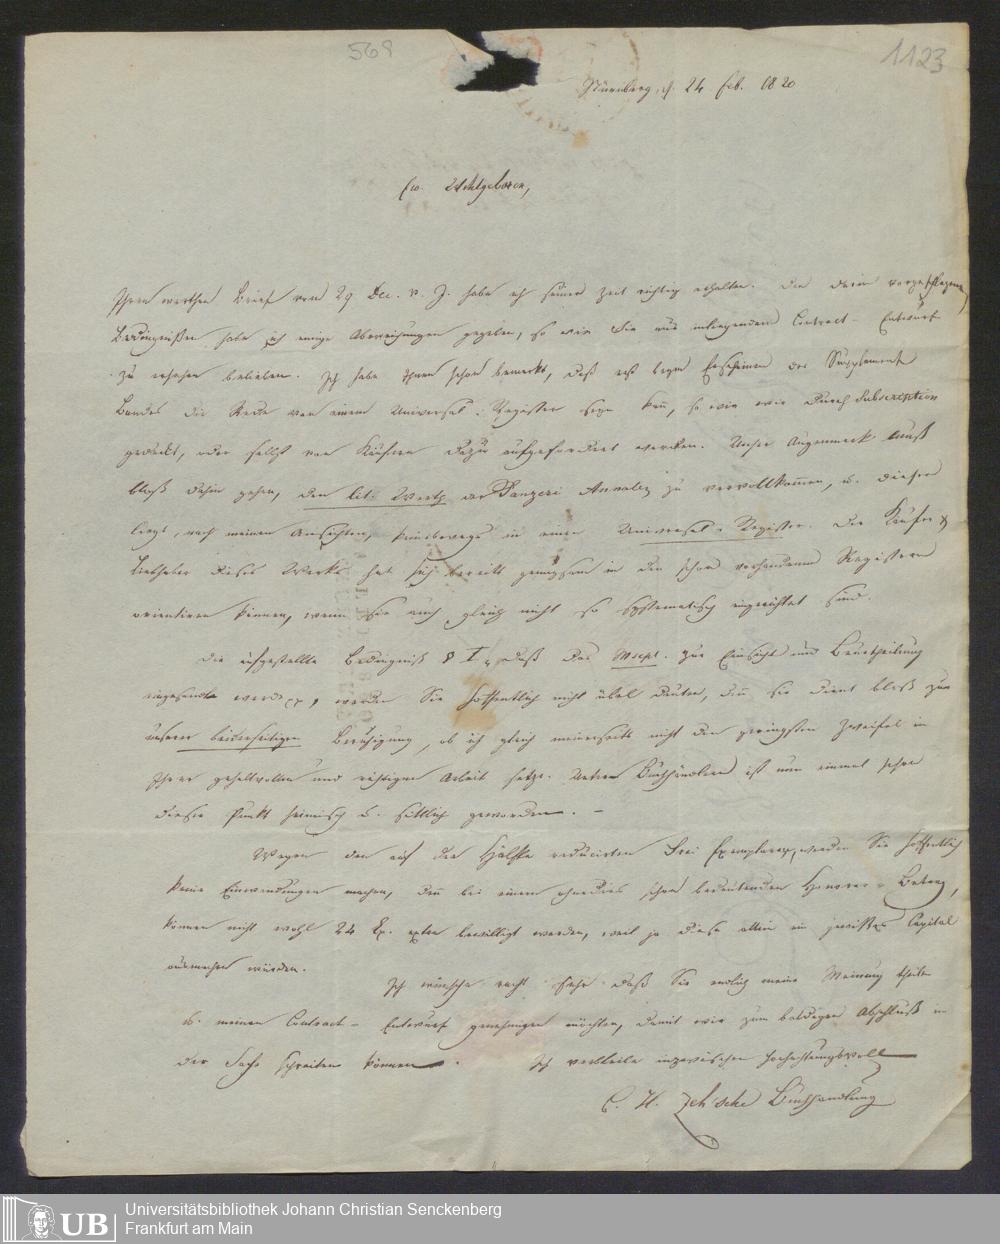 568
1123
Nürnberg, d. 24 Feb. 1820
Ew. Wohlgeboren,
Ihren werthen Brief vom 29 Dec. v. J. habe ich seiner Zeit richtig erhalten. Den darin vorgeschlagenen
Bedingnißen habe ich einige Abweichungen gegeben, so wie Sie aus inliegendem Contract-Entwurf
zu ersehen belieben. Ich habe Ihnen schon bemerkt, daß erst beym Erscheinen des Supplement
Bandes die Rede von einem Universal-Register seyn kan, so wie wir durch Subscription
gedeckt, oder selbst von Käufern dazu aufgefordert werden. Unser Augenmerk muß
bloß dahin gehen, den lit: Werth der Panzeri Annalen zu vervollkomen, u. dieser
liegt, nach meinen Ansichten, keineswegs in einem Universal-Register. Der Käufer &
Liebhaber dieses Werks hat sich bereits genugsam in den schon vorhandenen Registern
orientiren können, wenn sie auch gleich nicht so systematisch eingerichtet sind.
Die aufgestellte Bedingniß § I, daß das Mscpt. zur Einsicht und Beurtheilung
eingesandt werde, werden Sie hoffentlich nicht übel deuten, den sie dient bloß zur
unserer beiderseitigen Beruhigung, ob ich gleich meinerseits nicht den geringsten Zweifel in
Ihrer gehaltvollen und richtigen Arbeit setze. Unter Buchhändlern ist nun einmal schon
dieser Punkt heimisch u. sittlich geworden. –
Wegen den auf die Hälfte reducirten Frei Exemplaren, werden Sie hoffentlich
keine Einwendungen machen, den bei einem ohnedies schon bedeutenden Honorar-Betrag,
können nicht wohl 24 Ex. extra bewilligt werden, weil ja diese allein ein gewisses Capital
ausmachen würden.
Ich wünsche recht sehr daß Sie endlich meine Meinung theilen
u. meinen Contract-Entwurf genehmigen möchten, damit wir zum baldigen Abschluß in
der Sache schreiten können. Ich verbleibe inzwischen hochachtungsvoll
C. H. Zeh'sche Buchhandlung
UB
Universitätsbibliothek Johann Christian Senckenberg
Frankfurt am Main